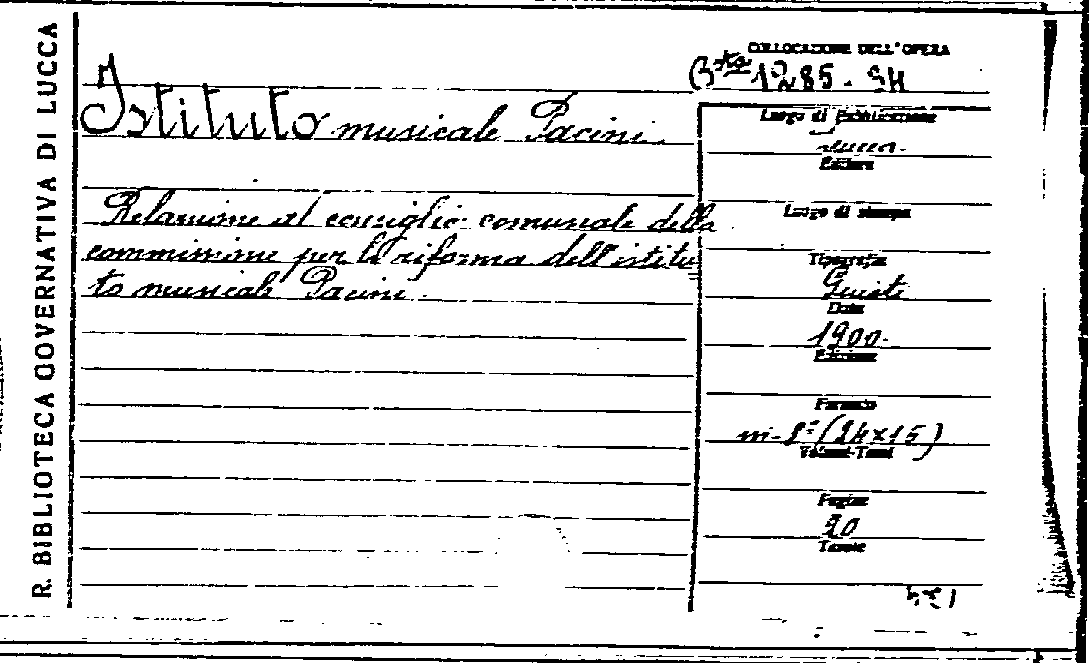 R. BIBLIOTECA GOVERNATIVA DI LUCCA
COLLOCAZIONE DELL'OPERA
Bta 1285.
Istituto musicale Pacini.
Relazione al consiglio comunale della
commissione per la riforma dell'istitu=
to musicale Pacini.
Luogo di Pubblicazione
Lucca.
Editore
Luogo di stampa
Tipografia
Giusti
Data
1900.
Edizione
Formato
in-8° (24x15)
Volumi-Tomi
Pagine
Tavole